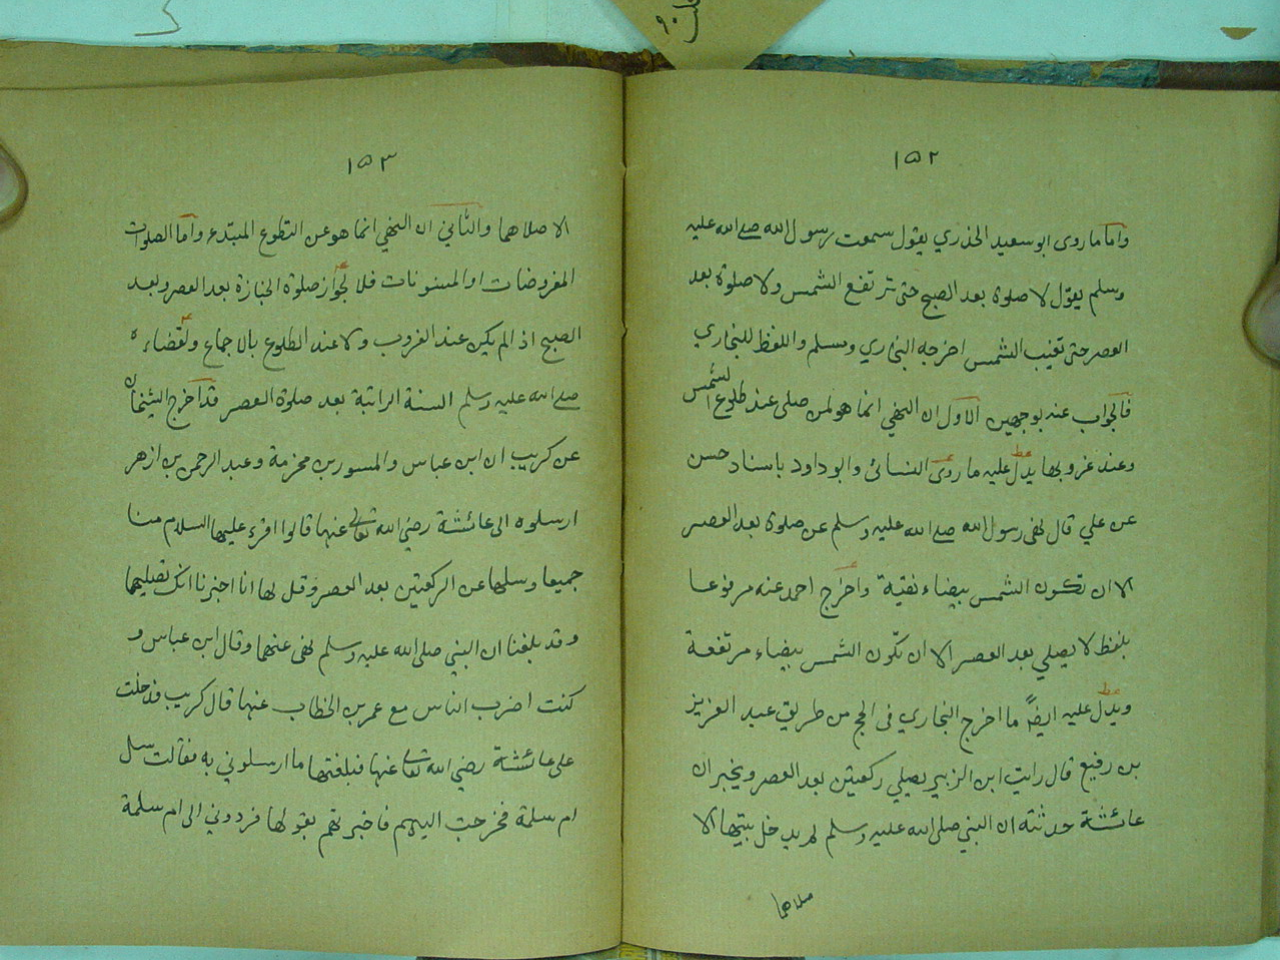 ١٥٢
واما ما روى ابو سعيد الخذري يقول سمعت رسول الله صلے الله عليه
وسلم يقول لا صلوة بعد الصبح حتى ترتفع الشمس ولا صلوة بعد
العصر حتى تغيب الشمس اخرجه البخاري ومسلم واللفظ للبخاري
فالجواب عنه بوجهين الاول ان النهي انما هو لمن صلى عند طلوع الشمس
وعند غروبها يدل عليه ما روى النسائى وابو داود باسناد حسن
عن علي قال نهى رسول الله صلے الله عليه وسلم عن صلوة بعد العصر
الا ان تكون الشمس بيضاء نقية واخرج احمد عنه مرفوعا
بلفظ لا يصلي بعد العصر الا ان تكون الشمس بيضاء مرتفعة
ويدل عليه ايضاً ما اخرج البخاري فى الحج من طريق عبد العزيز
بن رفيع قال رايت ابن الزبير يصلي ركعتين بعد العصر ويخبر ان
عائشة حدثته ان النبي صلى الله عليه وسلم لم يدخل بيتها الا
صلاهما
١٥٣
الا صلاهما والثاني ان النهي انما هو عن التطوع المبتدء واما الصلوات
المفروضات او المسنونات فلا لجواز صلوة الجنازة بعد العصر وبعد
الصبح اذ الم يكن عند الغروب ولا عند الطلوع بالاجماع ولقضاءه
صلے الله عليه وسلم السنة الراتبة بعد صلوة العصر فقد اخرج الشيخان
عن كريب ان ابن عباس والمسور بن مخرمة وعبد الرحمن بن ازهر
ارسلوه الى عائشة رضي الله تعالى عنها قالوا اقرء عليها السلام منا
جميعا وسلها عن الركعتين بعد العصر وقل لها انا اخبرنا انك تصليهما
وقد بلغنا ان النبي صلى الله عليه وسلم نهى عنهما وقال ابن عباس و
كنت اضرب الناس مع عمر بن الخطاب عنها قال كريب فدخلت
على عائشة رضي الله تعالى عنها فبلغتها ما ارسلوني به فقالت سل
ام سلمة فخرجت اليهم فاخبرتهم بقولها فردوني الى ام سلمة